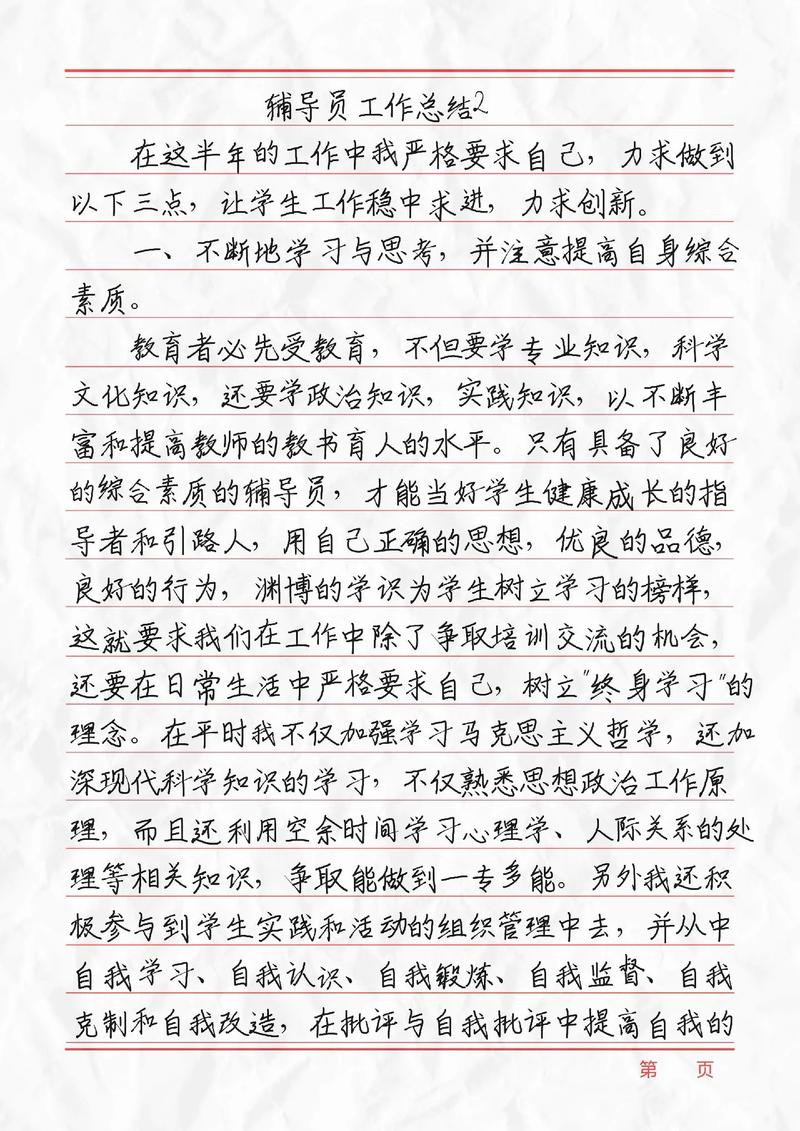 辅导员工作总结2
在这半年的工作中我严格要求自己，力求做到
以下三点，让学生工作稳中求进，力求创新。
一、不断地学习与思考，并注意提高自身综合
素质。
教育者必先受教育，不但要学专业知识，科学
文化知识，还要学政治知识，实践知识，以不断丰
富和提高教师的教书育人的水平。只有具备了良好
的综合素质的辅导员，才能当好学生健康成长的指
导者和引路人，用自己正确的思想，优良的品德，
良好的行为，渊博的学识为学生树立学习的榜样，
这就要求我们在工作中除了争取培训交流的机会，
还要在日常生活中严格要求自己，树立"终身学习"的
理念。在平时我不仅加强学习马克思主义哲学，还加
深现代科学知识的学习，不仅熟悉思想政治工作原
理，而且还利用空余时间学习心理学、人际关系的处
理等相关知识，争取能做到一专多能。另外我还积
极参与到学生实践和活动的组织管理中去，并从中
自我学习、自我认识、自我锻炼、自我监督、自我
克制和自我改造，在批评与自我批评中提高自我的
第 页